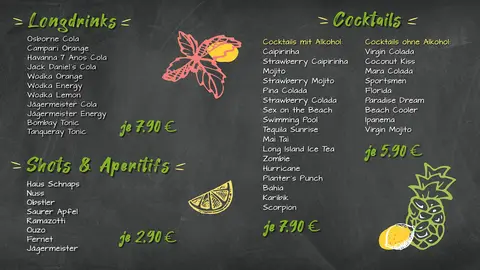 Longdrinks
Osborne Cola
Campari Orange
Havanna 7 Anos Cola
Jack Daniel's Cola
Wodka Orange
Wodka Energy
Wodka Lemon
Jägermeister Cola
Jägermeister Energy
Bombay Tonic
Tanqueray Tonic
je 7.90 €
Shots & Aperitifs
Haus Schnaps
Nuss
Obstler
Saurer Apfel
Ramazotti
Ouzo
Fernet
Jägermeister
je 2.90 €
Cocktails
Cocktails mit Alkohol
Caipirinha
Strawberry Caipirinha
Mojito
Strawberry Mojito
Pina Colada
Strawberry Colada
Sex on the Beach
Swimming Pool
Tequila Sunrise
Mai Tai
Long Island Ice Tea
Zombie
Hurricane
Planter's Punch
Bahia
Karibik
Scorpion
je 7.90 €
Cocktails ohne Alkohol
Virgin Colada
Coconut Kiss
Mara Colada
Sportsmen
Florida
Paradise Dream
Beach Cooler
Ipanema
Virgin Mojito
je 5.90 €